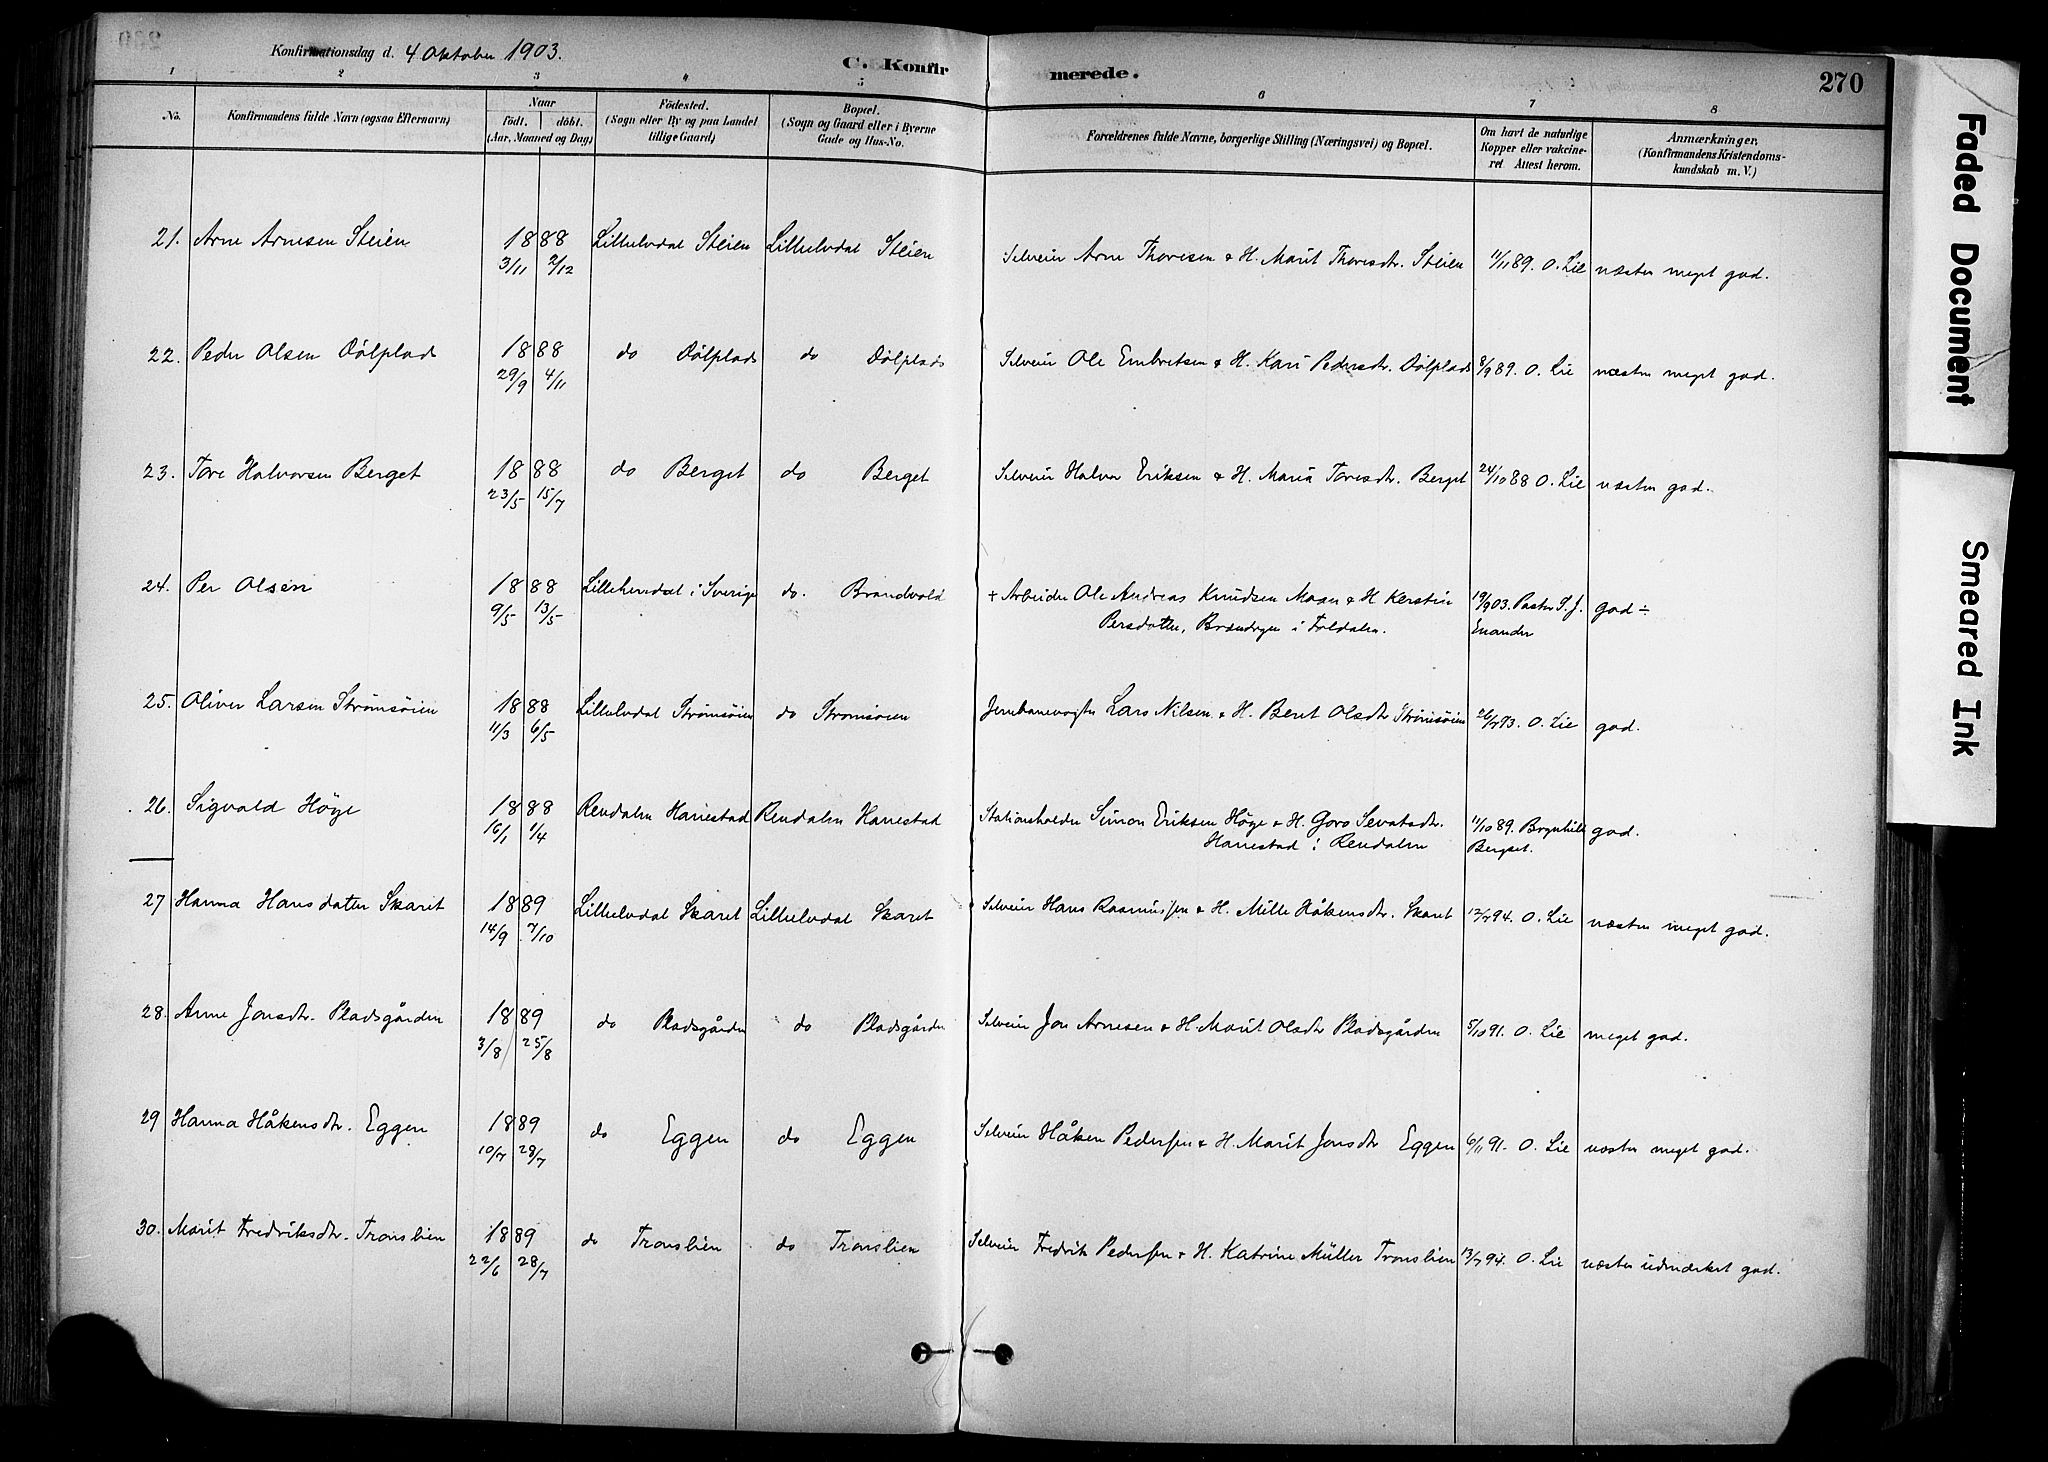 Konfirmationsdag d. 4 Oktober 1903.
C. Konfirmerede.
270
1 2 3 4 5 6 7 8
No.
Konfirmandens fulde Navn (ogsaa Efternavn)
Naar
födt. döbt.
(Aar, Maaned og Dag)
Födested.
(Sogn eller By og paa Landet
tillige Gaard)
Bopæl.
(Sogn og Gaard eller i Byerne
Gade og Hus-No.
Forældrenes fulde Navne, borgerlige Stilling (Næringsvei) og Bopæl.
Om havt de naturlige
Kopper eller vakcine-
ret Attest herom.
Anmærkninger.
(Konfirmandens Kristendoms-
kundskab m. V.)
21. Arne Arnesen Steien 1888 3/11 2/12 Lilleelvdal Steien Lilleelvdal Steien Selveier Arne Thoresen & H. Marit Thoresdtr. Steien 11/11 89. O. Lie næsten meget god.
22. Peder Olsen Dölplads 1888 29/9 4/11 do Dölplads do Dölplads Selveier Ole Embretsen & H. Kari Pedersdtr. Dölplads 8/9 89. O. Lie næsten meget god.
23. Tore Halvorsen Berget 1888 23/5 15/7 do Berget do Berget Selveier Halvor Eriksen & H. Maria Toresdtr. Berget 24/10 88 O. Lie næsten god.
24. Per Olsen 1888 9/5 13/5 Lilleherdal i Sverige do. Brandvold + Arbeider Ole Andreas Knudsen Moan & H. Kerstin 19/9 03. Pastor S. J. god ÷
Persdatter, i Foldalen. Enander
25. Oliver Larsen Strömsöien 1888 11/3 6/5 Lilleelvdal Strömsöien do Strömsöien Jernbanevogter Lars Nilsen & H. Berit Olsdtr Strömsöien 26/7 93. O. Lie god.
26. Sigvald Höye 1888 16/1 1/4 Rendalen Hanestad Rendalen Hanestad Stationsholder Simon Eriksen Höye & H. Goro Sevatsdtr. 11/10 89. Brynhild god.
Hanestad i Rendalen Bergset.
27 Hanna Hansdatter Skaret 1889 14/9 7/10 Lilleelvdal Skaret Lilleelvdal Skaret Selveier Hans Rasmussen & H. Mille Håkensdtr. Skaret 13/7 94. O. Lie næsten meget god.
28. Anne Jonsdtr. Pladsgården 1889 3/8 25/8 do Pladsgården do Pladsgården Selveier Jon Arnesen & H. Marit Olsdtr Pladsgården 5/10 91. O. Lie meget god.
29 Hanna Håkensdtr. Eggen 1889 10/7 28/7 do Eggen do Eggen Selveier Håken Pedersen & H. Marit Jonsdtr Eggen 6/11 91. O. Lie næsten meget god.
30. Marit Fredriksdtr. Tronslien 1889 22/6 28/7 do Tronslien do Tronslien Selveier Fredrik Pedersen & H. Katrine Müller Tronslien 13/7 94. O. Lie næsten udmærket god.
Faded Document
Smeared Ink